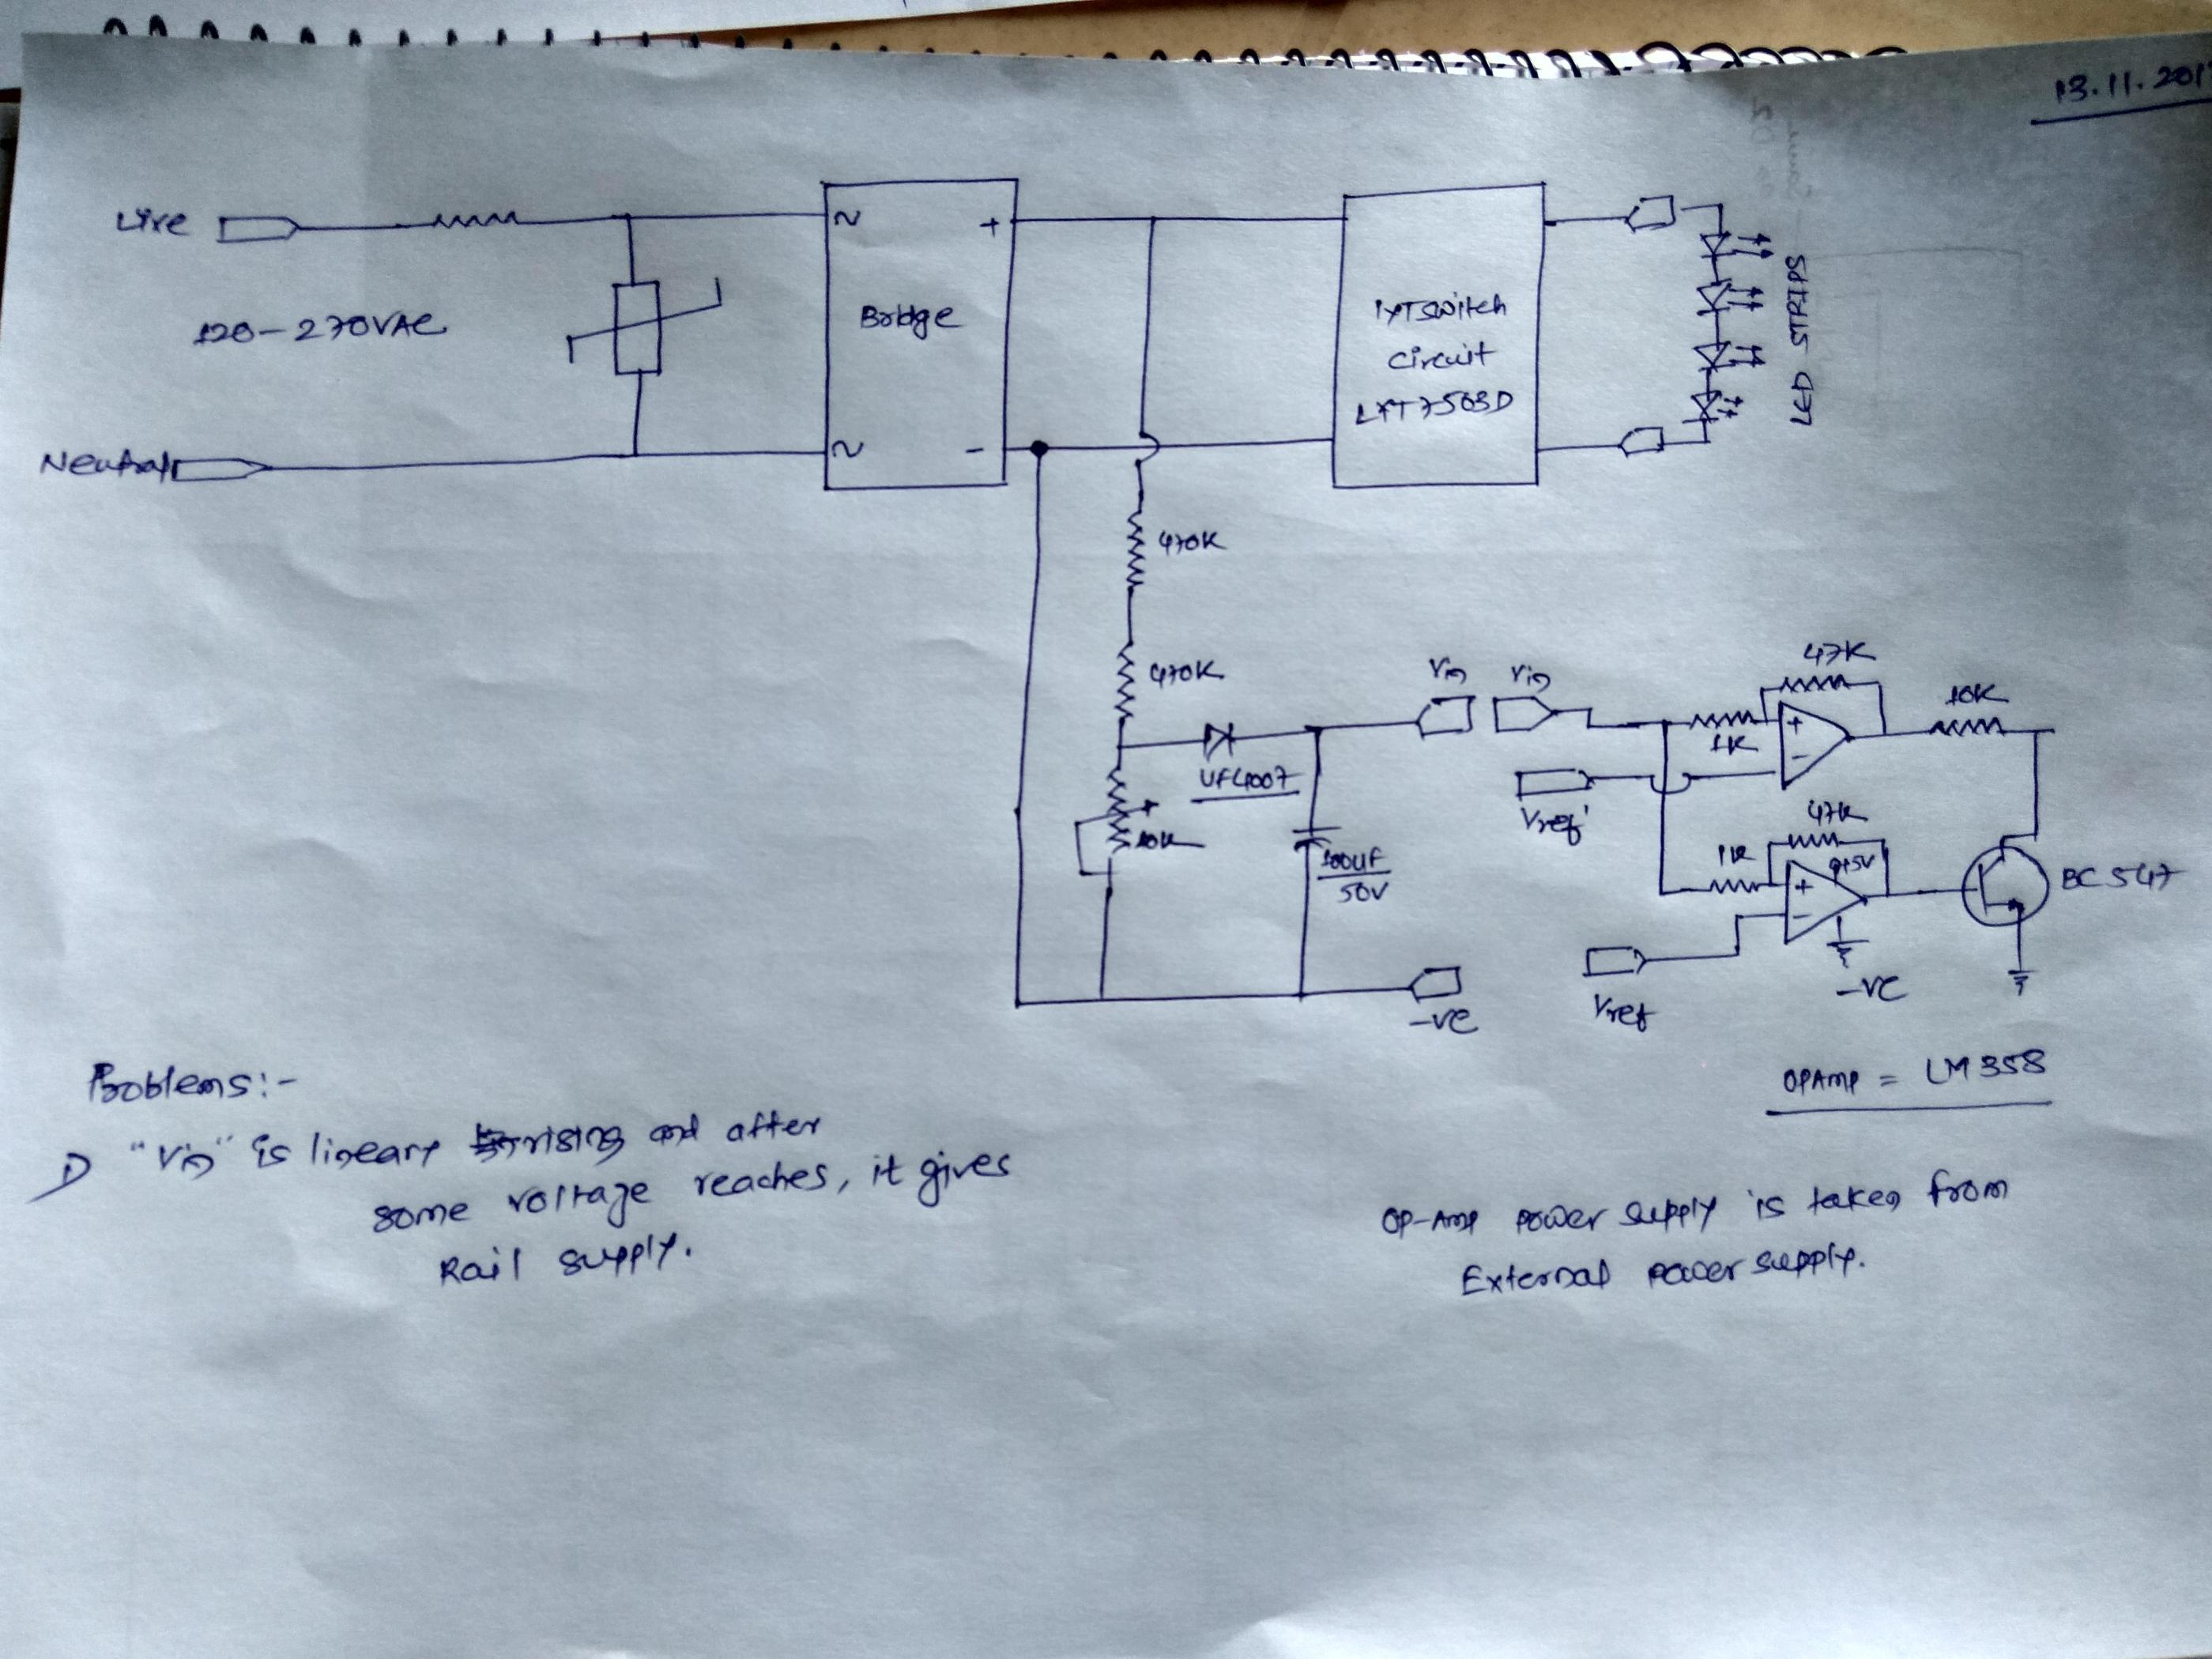 13.11.201
Live
120-270VAC
Neutral
~
+
Bridge
~
-
LYTSwitch
circuit
LYT7503D
LED STRIPS
470K
470K
UF4007
10K
100uF
50V
Vin
Vin
-ve
47K
1K
+
-
10K
Vref'
47K
1K
+5V
+
-
Vref
-ve
BC547
OPAMP = LM358
Problems:-
1) "Vin" is lineary rising and after
some voltage reaches, it gives
Rail supply.
OP-Amp power supply is taken from
External power supply.